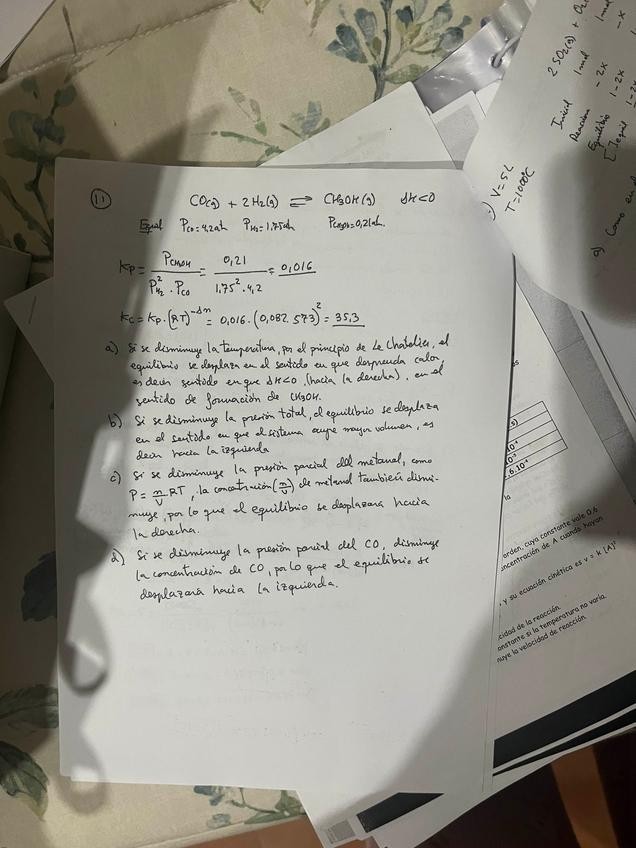 11
CO(g) + 2H₂(g) ⇌ CH₃OH(g) ΔH<0
Equil PCO=4,2atm PH₂=1,75atm PCH₃OH=0,21atm.
KP = PCH₃OH / P²H₂ · PCO = 0,21 / 1,75² · 4,2 = 0,016
KC = KP · (RT)^-Δn = 0,016 · (0,082 · 573)² = 35,3
a) Si se disminuye la temperatura, por el principio de Le Chatelier, el
equilibrio se desplaza en el sentido en que desprenda calor,
es decir sentido en que ΔH<0, (hacia la derecha), en el
sentido de formación de CH₃OH.
b) Si se disminuye la presión total, el equilibrio se desplaza
en el sentido en que el sistema ocupe mayor volumen, es
decir hacia la izquierda
c) Si se disminuye la presión parcial del metanol, como
P = n/V RT, la concentración (n/V) de metanol también dismi-
nuye, por lo que el equilibrio se desplazará hacia
la derecha.
d) Si se disminuye la presión parcial del CO, disminuye
la concentración de CO, por lo que el equilibrio se
desplazará hacia la izquierda.
2 SO₂(g) + O₂
Inicial 1mol 1mol
Reacción -2x -x
Equilibrio 1-2x
1-2x
V=5L
T=1000ºC
a) Como en el
orden, cuya constante vale 0,6
concentración de A cuando hayan
y su ecuación cinética es v = k [A]²
cidad de la reacción.
onstante si la temperatura no varía.
nuye la velocidad de reacción.